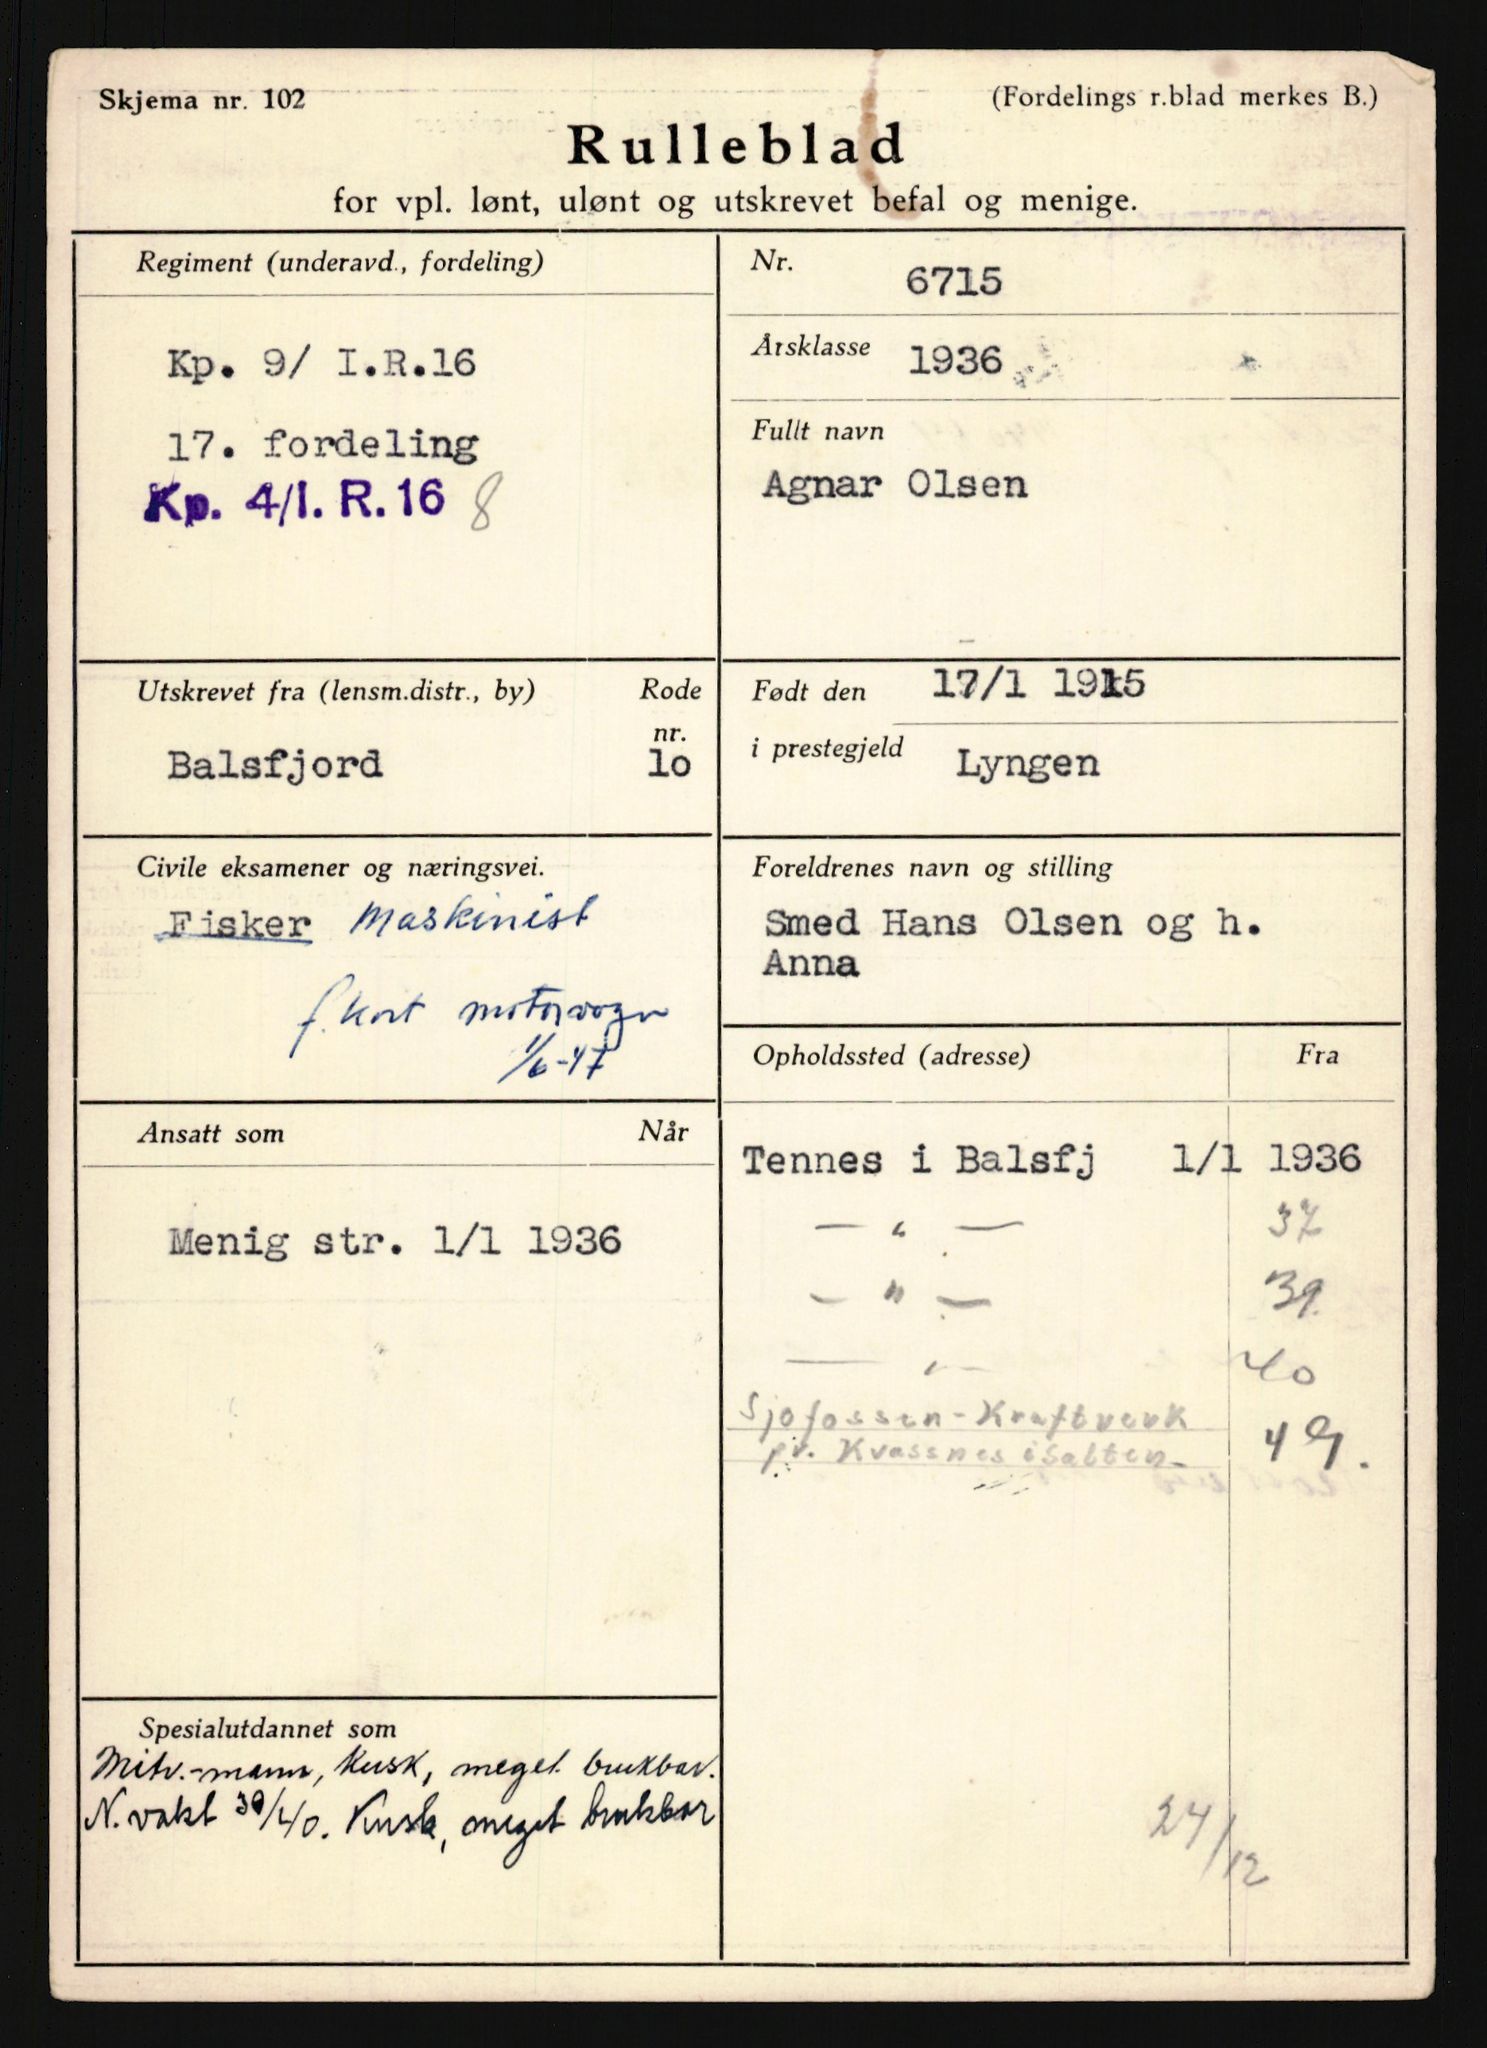 Skjema nr. 102
(Fordelings r.blad merkes B.)
Rulleblad
for vpl. lønt, ulønt og utskrevet befal og menige.
Regiment (underavd., fordeling)
Kp. 9/ I.R.16
17. fordeling
Kp. 4/I. R. 16 8
Nr. 6715
Årsklasse 1936
Fullt navn
Agnar Olsen
Utskrevet fra (lensm.distr., by)
Rode
nr.
Balsfjord
lo
Født den 17/1 1915
i prestegjeld Lyngen
Civile eksamener og næringsvei.
Fisker Maskinist
f.kort motorvogn
1/6-47
Foreldrenes navn og stilling
Smed Hans Olsen og h.
Anna
Ansatt som
Når
Menig str. 1/1 1936
Opholdssted (adresse)
Fra
Tennes i Balsfj 1/1 1936
— " — 37
— " — 39.
— " — 40
Sjofossen-Kraftverk
pr. Kvassnes i Salten- 49.
24/12
Spesialutdannet som
Mitr.-mann, Kusk, meget brukbar.
N.vakt 39/40. Kusk, meget brukbar